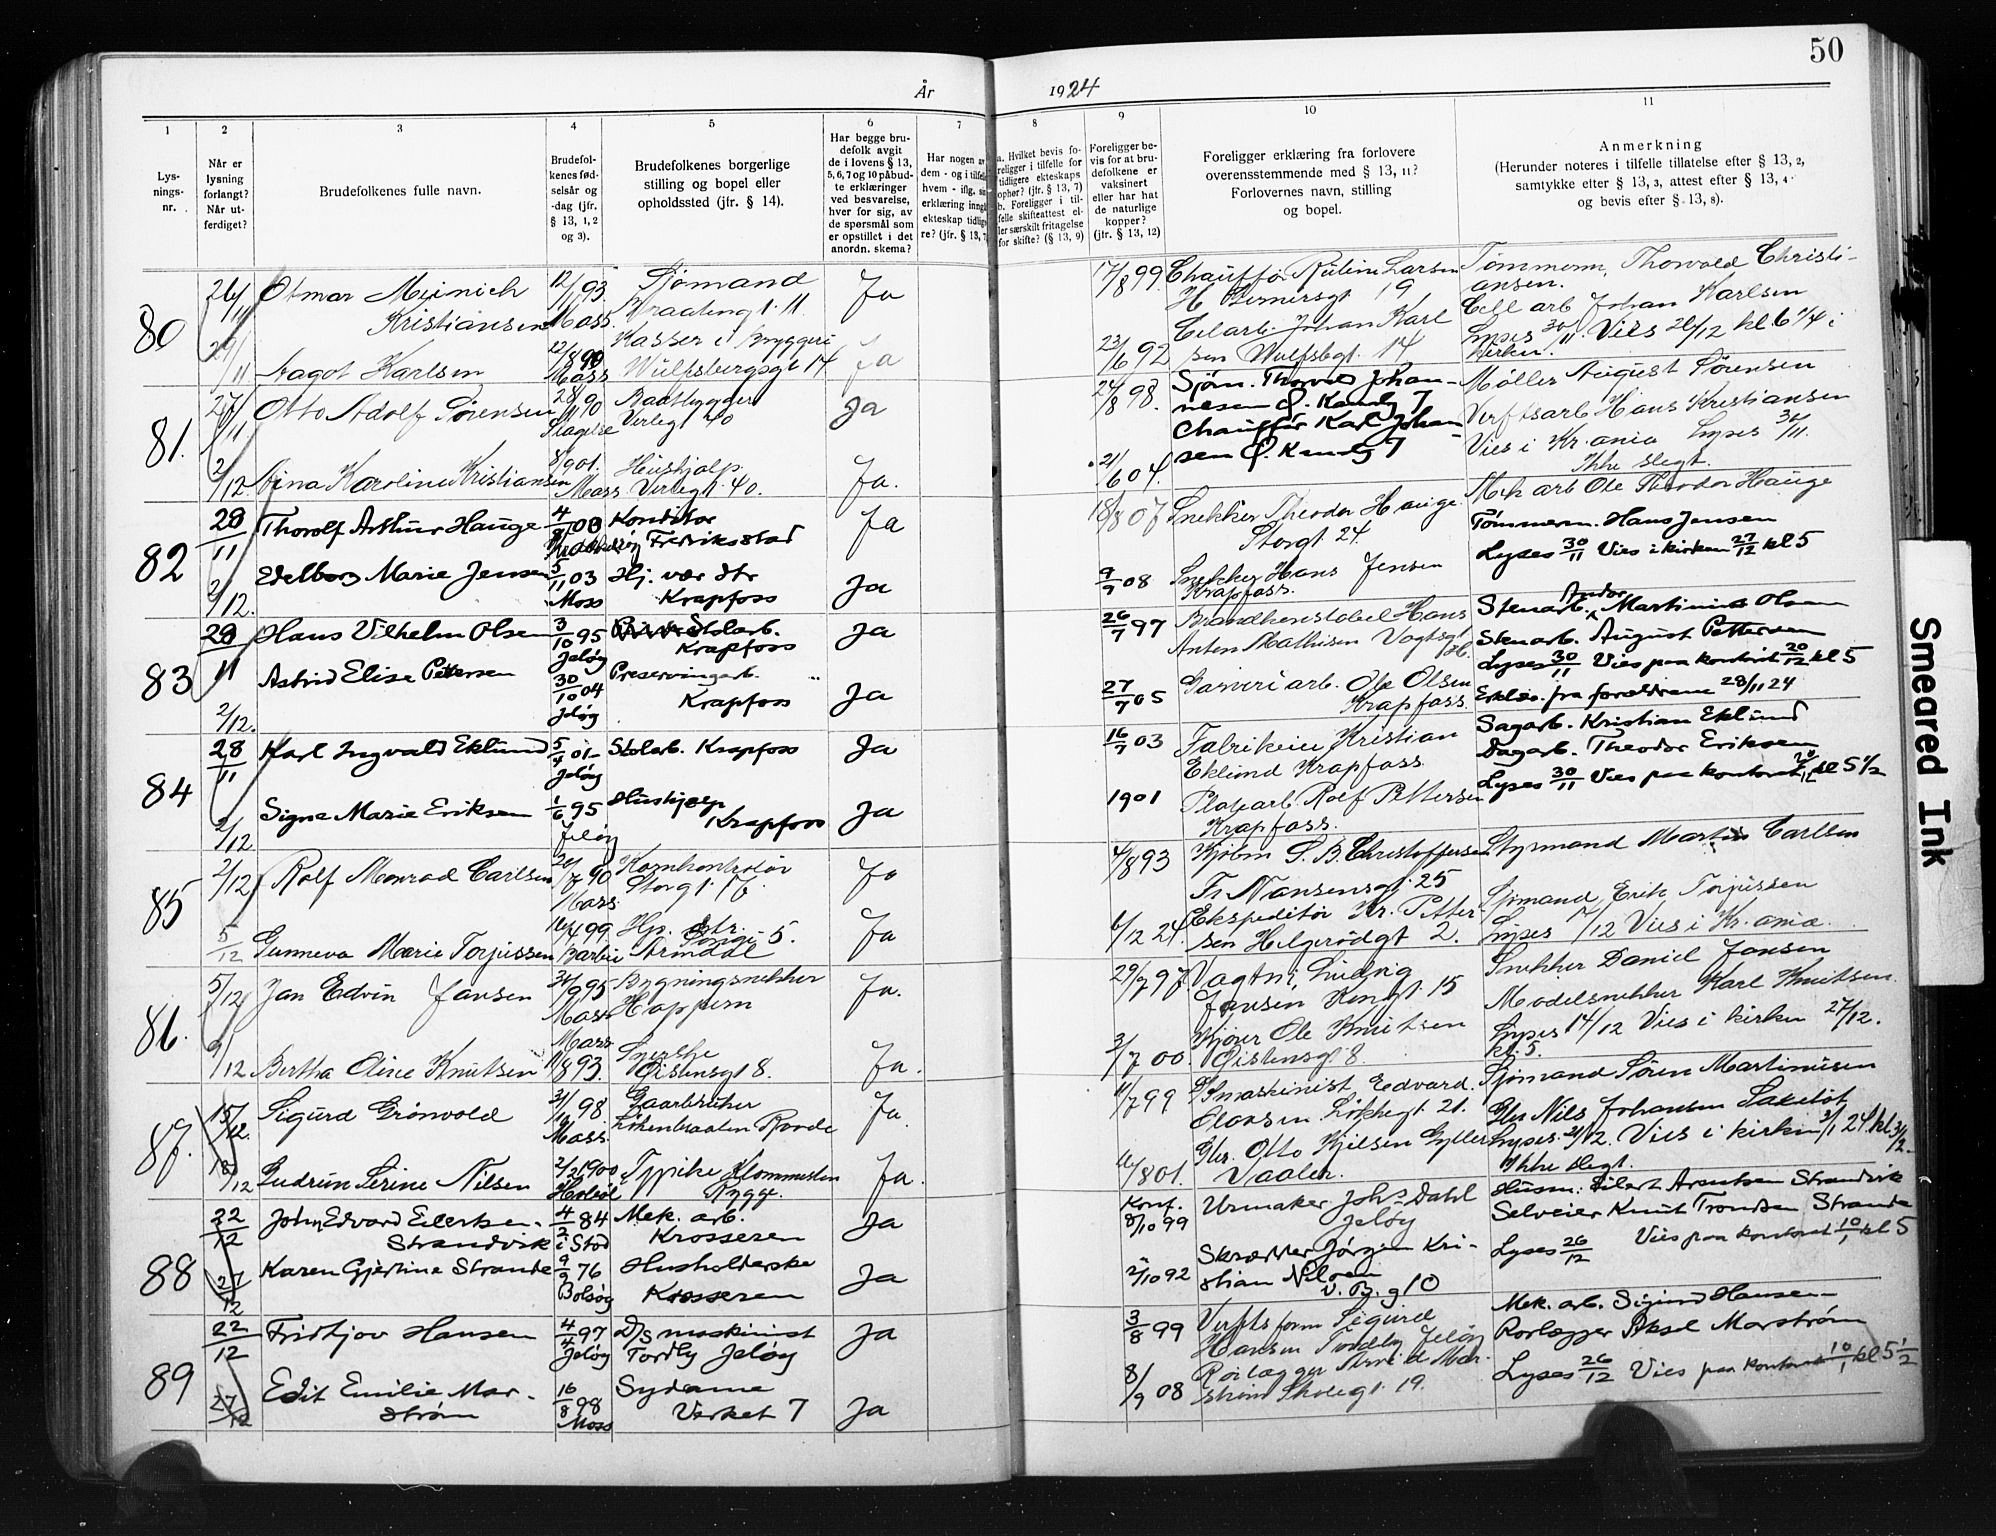 50
År 1924
1
Lys-
nings-
nr.
2
Når er
lysning
forlangt?
Når ut-
ferdiget?
3
Brudefolkenes fulle navn.
4
Brudefol-
kenes fød-
selsår og
-dag (jfr.
§ 13, 1, 2
og 3).
5
Brudefolkenes borgerlige
stilling og bopel eller
opholdssted (jfr. § 14).
6
Har begge bru-
defolk avgit
de i lovens § 13,
5, 6, 7 og 10 påbud-
te erklæringer
ved besvarelse,
hver for sig, av
de spørsmål som
er opstillet i det
anordn. skema?
7
Har nogen av
dem - og i tilfelle
hvem - iflg. sin
erklæring inngå
ekteskap tidlige
re? (jfr. § 13, 7
8
a. Hvilket bevis fo-
religger i tilfelle for
tidligere ekteskaps
ophør? (jfr. § 13, 7)
b. Foreligger i til-
felle skifteattest el-
ler særskilt fritagelse
for skifte? (§ 13, 9)
9
Foreligger be-
vis for at bru-
defolkene er
vaksinert
eller har hat
de naturlige
kopper?
(jfr. § 13, 12)
10
Foreligger erklæring fra forlovere
overensstemmende med § 13, 11?
Forlovernes navn, stilling
og bopel.
11
Anmerkning
(Herunder noteres i tilfelle tillatelse efter § 13, 2,
samtykke efter § 13, 3, attest efter § 13, 4
og bevis efter § 13, 8).
80
Otmar Meinich
Kristiansen
12/11 93
Moss.
Sjømand
11
Ja
17/8 99.
Chauffør Rubin Larsen
19
Tømmerm. Thorvald Christi-
ansen.
Aagot Karlsen
12/8 90
Moss
Kasser i Bryggeri
Wulfsbergsgt 14
Ja
23/6 92
Cellarb. Johan Karl
sen Wulfsbgt. 14
Cell arb Johan Karlsen
Lyses 30/11. Vies 26/12 kl 6 1/4 i
kirken.
81.
27/11
Otto Adolf Sørensen
28/11 90
Slagelse
Baatbygger
Verlegt 40
Ja
24/8 98.
Sjøm. Thorvald Johan-
nesen
Møller August Sørensen
2/12.
Aina Karoline Kristiansen
8/9 01.
Moss
Hushjelp.
Verlegt. 40.
Ja.
21/6 04.
Chauffør Karl Johan-
sen
Verftsarb Hans Kristiansen
Vies i Kr.ania Lyses 30/11.
Ikke slegt.
82
28/11
Thorolf Arthur Hauge
Konditor
Fredriksstad
Ja
18/8 07
Snekker Theodor Hauge
Storgt 24.
Mek arb Ole Theodor Hauge
2/12.
Edelborg Marie Jensen
5/11 03
Moss
Hj. vær. dtr
Krapfoss
Ja
9/9 08
Snekker Hans Jensen
Krapfoss.
Tømmerm. Hans Jensen
Lyses 30/11 Vies i kirken 27/12 kl 5
83
28/11
Hans Vilhelm Olsen
3/10 95
Jeløy
Stolarb.
Krapfoss
Ja
26/7 97
Brandkonstabel Hans
Anton Mathisen Vogtsgt
Stenarb. Andor Martinius Olsen
2/12.
Astrid Elise Pettersen
30/10 04
Jeløy
Preservingarb.
Krapfoss
Ja
27/7 05
Garveriarb. Ole Olsen
Krapfoss.
Stenarb. August Pettersen
Lyses 30/11 Vies paa kontoret 20/12 kl 5
Erklær. fra foreldrene 28/11 24
84
28/11
Karl Ingvald Eklund
5/4 01-
Jeløy
Stolarb. Krapfoss
Ja
16/7 03
Fabrikeier Kristian
Eklund Krapfoss
Sagarb. Kristian Eklund
2/12
Signe Marie Eriksen
1/6 95
Jeløy
Hushjelp
Krapfoss
Ja
1901
Platearb. Rolf Pettersen
Krapfoss.
Dagarb. Theodor Eriksen
Lyses 30/11 Vies paa kontoret 20/12 kl 5 1/2
85
2/12
Rolf Monrad Carlsen
20/7 90
Moss.
Kornkontrolør
Storgt. 18.
Ja
4/8 93
Kjøbm S. B. Christoffersen
Fr. Nansensgt. 25
Styrmand Martin Carlsen
5/12
Gunneva Marie Torjussen
16/4 99
Barbu
Hp. dtr.
5.
Arendal
Ja
6/12 24.
Ekspeditør Kr. Petter-
sen Helgerødgt 2.
Sjømand Erik Torjussen
Lyses 7/12 Vies i Kr.ania.
86.
5/12
Jan Edvin Jansen
30/9 95
Moss
Bygningsnekker
Hoppern
Ja.
29/7 97.
Vagtm. Ludvig
Jansen Kongt. 15
Snekker Daniel Jansen
9/12
Bertha Oline Knutsen
Moss
11/8 93.
Syerske
Øistensgt 8.
Ja.
3/7 00.
Kjører Ole Knutsen
Øistensgt 8.
Modelsnekker Karl Knutsen.
Lyses 14/12 Vies i kirken 27/12.
kl. 5.
87.
15/12.
Sigurd Grønvold
Moss.
Gaarbruker
Ja.
11/7 99
D/S maskinist Edvard
Olavsen Løkkegt. 21.
Sjømand Søren Martinusen
18/12
Gudrun Serine Nilsen
2/2 1900
Hobøl
Rygge.
Ja.
16/8 01.
Gbr. Otto Kjelsen
Vaaler.
Gbr Nils Johansen
Lyses 21/12. Vies i kirken 3/1 24. kl 3 1/2.
Ikke slegt.
88
22/12
John Edvard Eilertsen
Strandvik
4/2 84
i Stod
Mek. arb.
Krosseren
Ja
Konf.
8/10 99
Urmaker Johs Dahl
Jeløy
Husm. Eilert Arentsen Strandvik
27/12
Karen Gjertine Strande
9/9 76
Bolsøy
Husholderske
Krosseren
Ja
2/10 92
Skrædder Jørgen Kri-
stian Nilsen
V. B. g 10
Selveier Knut Trondsen Strande
Lyses 26/12 Vies paa kontoret 10/1 kl 5
89
22/12
Fridtjov Hansen
4/4 97
Jeløy
D/S maskinist
Tordly Jeløy
Ja
3/8 99
Verftsform Sigurd
Hansen Tordly Jeløy
Mek. arb. Sigurd Hansen
27/12
Edit Emilie Mar-
strøm
16/8 98
Moss
Sydame
Verket 7
Ja
8/9 08
Rørlægger Arne d Mar-
strøm Skolegt. 19.
Rørlægger Aksel Marstrøm
Lyses 26/12 Vies paa kontoret 10/1 kl 5 1/2
Smeared Ink